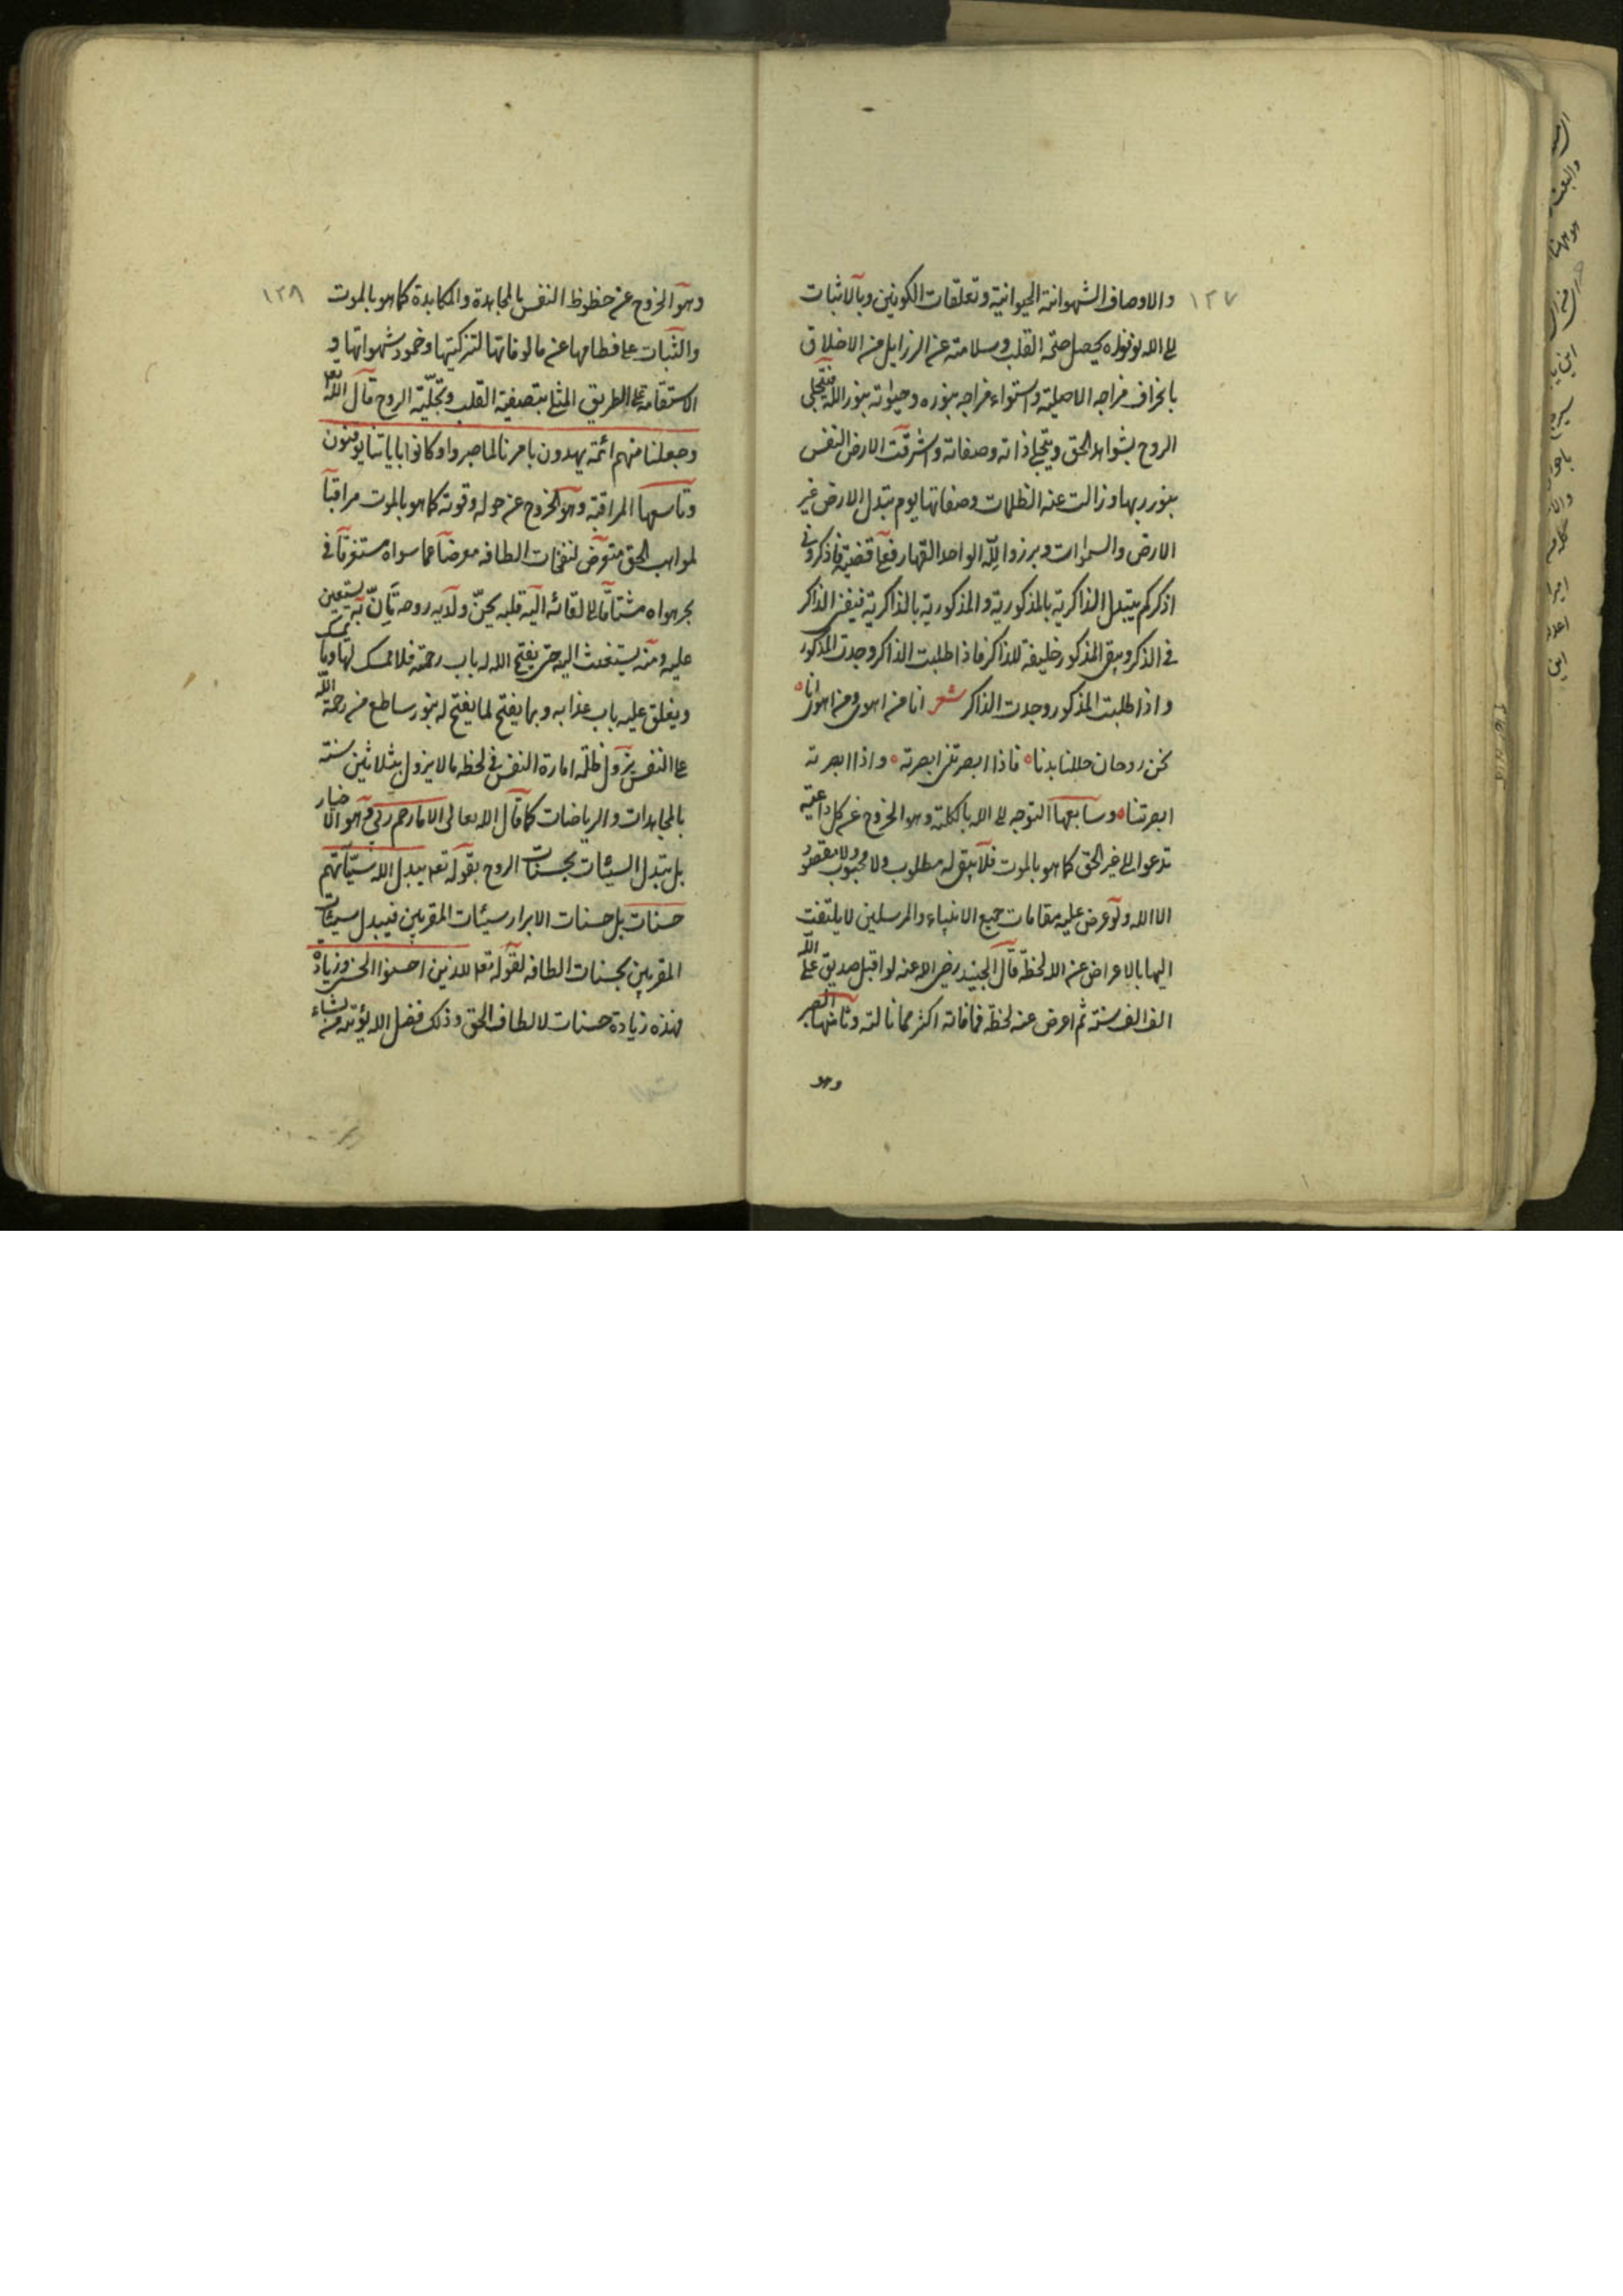 ١٢٧
والاوصاف الشهوانية الحيوانية وتعلقات الكونين وبالاثبات
الى الله ونوره يحصل صحة القلب وسلامته عن الرزايل من الاخلاق
بانحراف مزاجه الاصلية واستواء مزاجه بنوره وحيوته بنور الله فيتجلى
الروح بشواهد الحق ويتجلى ذاته وصفاته واشرقت الارض النفس
بنور ربها وزالت عنه الظلمات وصفاتها يوم تبدل الارض غير
الارض والسموات وبرزوا لله الواحد القهار فعلى قضية فاذكروني
اذكركم يتبدل الذاكرية بالمذكورية والمذكورية بالذاكرية فيفنى الذاكر
في الذكر ويبقى المذكور خليفة للذاكر فاذا طلبت الذاكر وجدت المذكور
واذا طلبت المذكور وجدت الذاكر شعر انا من اهوى ومن اهوى انا
نحن روحان حللنا بدنا فاذا ابصرتنى ابصرته واذا ابصرته
ابصرتنا وسابعها التوجه الى الله بالكلية وهو الخروج عن كل داعية
تدعوا الى غير الحق كما هو بالموت فلا يبقى له مطلوب ولا محبوب ولا مقصود
الا الله ولو عرض عليه مقامات جميع الانبياء والمرسلين لا يلتفت
اليها بالاعراض عن الله لحظة قال الجنيد رضى الله عنه لو اقبل صديق على الله
الف الف سنة ثم اعرض عنه لحظة فما فاته اكثر مما ناله وثامنها الصبر
وهو
١٢٨
وهو الخروج عن حظوظ النفس بالمجاهدة والمكابدة كما هو بالموت
والثبات على فطامها عن مالوفاتها لتزكيتها وخمود شهواتها و
الاستقامة على الطريق المثلى بتصفية القلب وتجلية الروح قال الله تع
وجعلنا منهم ائمة يهدون بامرنا لما صبروا وكانوا باياتنا يوقنون
وتاسعها المراقبة وهو الخروج عن حوله وقوته كما هو بالموت مراقبا
لمواهب الحق متعرض لنفحات الطافه معرضا عما سواه مستغرقا في
بحر هواه مشتاقا الى لقائه اليه قلبه يحن ولديه روحه يأن به يستعين
عليه ومنه يستغيث اليه حتى يفتح الله له باب رحمة فلا ممسك لها وما يمسك
ويغلق عليه باب عذابه وبما يفتح لما يفتح له بنور ساطع من رحمة الله
على النفس يزول ظلمة امارة النفس في لحظة ما لا يزول بثلاثين سنة
بالمجاهدات والرياضات كما قال الله تعالى الا ما رحم ربي وهو الاخيار
بل تبدل السيئات بحسنات الروح بقوله تع يبدل الله سيئآتهم
حسنات بل حسنات الابرار سيئات المقربين فيبدل سيئات
المقربين بحسنات الطافه لقوله تع للذين احسنوا الحسنى وزيادة
فهذه زيادة حسنات لالطاف الحق وذلك فضل الله يؤتيه من يشاء